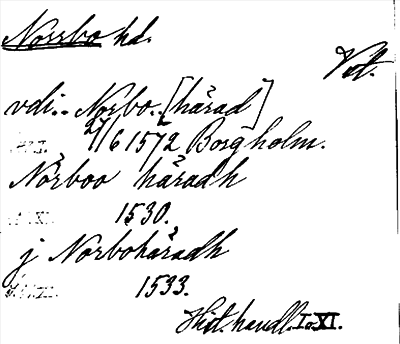 Norrbo hd.
Vst.
vdi.. Norbo. [härad]
27/6 1572 Borgholm.
Norboo häradh
1530.
j Norbohäradh
1533.
Hist. handl. I. XI.